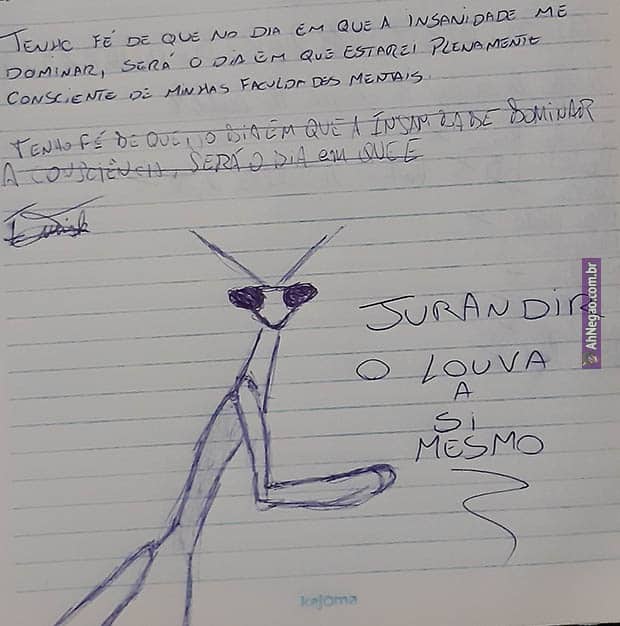 TENHO FÉ DE QUE NO DIA EM QUE A INSANIDADE ME
DOMINAR, SERÁ O DIA EM QUE ESTAREI PLENAMENTE
CONSCIENTE DE MINHAS FACULDADES MENTAIS.
TENHO FÉ DE QUE, NO DIA EM QUE A INSANIDADE DOMINAR
A CONSCIÊNCIA, SERÁ O DIA em QUE E
JURANDIR
O LOUVA
A
SI
MESMO
AhNegão.com.br
kajoma